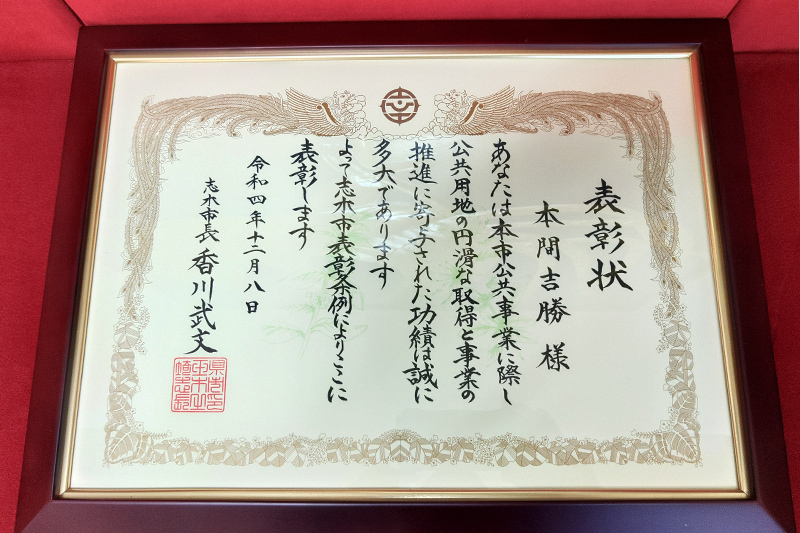 表彰状
本間吉勝 様
あなたは本市公共事業に際し
公共用地の円滑な取得と事業の
推進に寄与された功績は誠に
多大であります
よって志木市表彰条例によりここに
表彰します
令和四年十二月八日
志木市長 香川武文